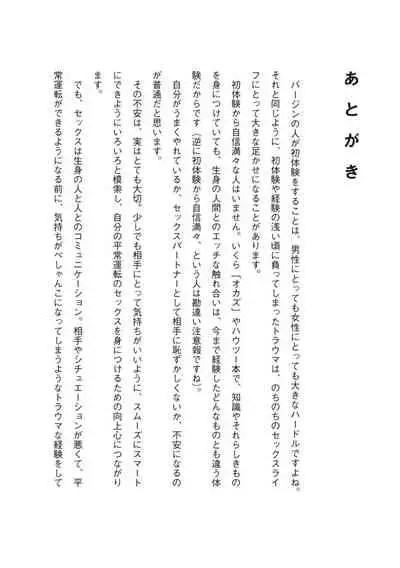 あとがき
バージンの人が初体験をすることは、男性にとっても女性にとっても大きなハードルですよね。
それと同じように、初体験や経験の浅い頃に負ってしまったトラウマは、のちのちのセックスライ
フにとって大きな足かせになることがあります。
初体験から自信満々な人はいません。いくら「オカズ」やハウツー本で、知識やそれらしきもの
を身につけていても、生身の人間とのエッチな触れ合いは、今まで経験したどんなものとも違う体
験だからです（逆に初体験から自信満々、という人は勘違い注意報ですね）。
自分がうまくやれているか、セックスパートナーとして相手に恥ずかしくないか、不安になるの
が普通だと思います。
その不安は、実はとても大切。少しでも相手にとって気持ちがいいように、スムーズにスマート
にできようにいろいろと模索し、自分の平常運転のセックスを身につけるための向上心につながり
ます。
でも、セックスは生身の人と人とのコミュニケーション。相手やシチュエーションが悪くて、平
常運転ができるようになる前に、気持ちがぺしゃんこになってしまうようなトラウマな経験をして